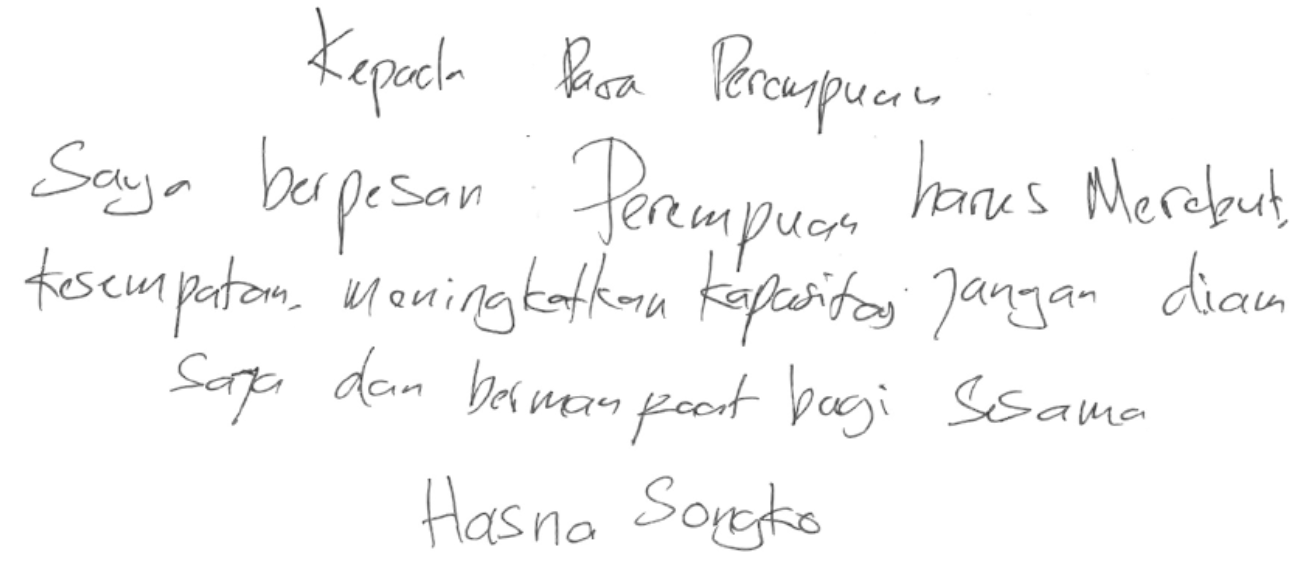 Kepada Para Perempuan
Saya berpesan Perempuan harus Merebut
kesempatan. meningkatkan kapasitas jangan diam
saja dan bermanpaat bagi sesama
Hasna Songko